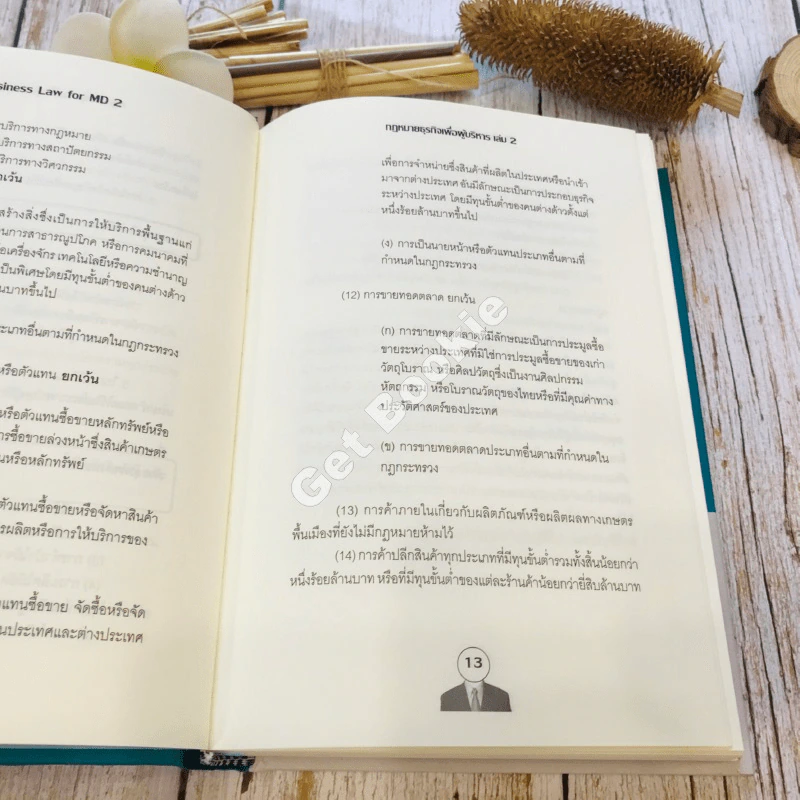 siness Law for MD 2
บริการทางกฎหมาย
บริการทางสถาปัตยกรรม
ริการทางวิศวกรรม
กเว้น
สร้างสิ่งซึ่งเป็นการให้บริการพื้นฐานแก่
านการสาธารณูปโภค หรือการคมนาคมที่
อเครื่องจักร เทคโนโลยีหรือความชำนาญ
เป็นพิเศษโดยมีทุนขั้นต่ำของคนต่างด้าว
นบาทขึ้นไป
ะเภทอื่นตามที่กำหนดในกฎกระทรวง
หรือตัวแทน ยกเว้น
หรือตัวแทนซื้อขายหลักทรัพย์หรือ
ารซื้อขายล่วงหน้าซึ่งสินค้าเกษตร
นหรือหลักทรัพย์
ตัวแทนซื้อขายหรือจัดหาสินค้า
ารผลิตหรือการให้บริการของ
แทนซื้อขาย จัดซื้อหรือจัด
นประเทศและต่างประเทศ
กฎหมายธุรกิจเพื่อผู้บริหาร เล่ม 2
เพื่อการจำหน่ายซึ่งสินค้าที่ผลิตในประเทศหรือนำเข้า
มาจากต่างประเทศ อันมีลักษณะเป็นการประกอบธุรกิจ
ระหว่างประเทศ โดยมีทุนขั้นต่ำของคนต่างด้าวตั้งแต่
หนึ่งร้อยล้านบาทขึ้นไป
(ง) การเป็นนายหน้าหรือตัวแทนประเภทอื่นตามที่
กำหนดในกฎกระทรวง
(12) การขายทอดตลาด ยกเว้น
(ก) การขายทอดตลาดที่มีลักษณะเป็นการประมูลซื้อ
ขายระหว่างประเทศที่มิใช่การประมูลซื้อขายของเก่า
วัตถุโบราณ หรือศิลปวัตถุซึ่งเป็นงานศิลปกรรม
หัตถกรรม หรือโบราณวัตถุของไทยหรือที่มีคุณค่าทาง
ประวัติศาสตร์ของประเทศ
(ข) การขายทอดตลาดประเภทอื่นตามที่กำหนดใน
กฎกระทรวง
(13) การค้าภายในเกี่ยวกับผลิตภัณฑ์หรือผลิตผลทางเกษตร
พื้นเมืองที่ยังไม่มีกฎหมายห้ามไว้
(14) การค้าปลีกสินค้าทุกประเภทที่มีทุนขั้นต่ำรวมทั้งสิ้นน้อยกว่า
หนึ่งร้อยล้านบาท หรือที่มีทุนขั้นต่ำของแต่ละร้านค้าน้อยกว่ายี่สิบล้านบาท
13
Get Bookie